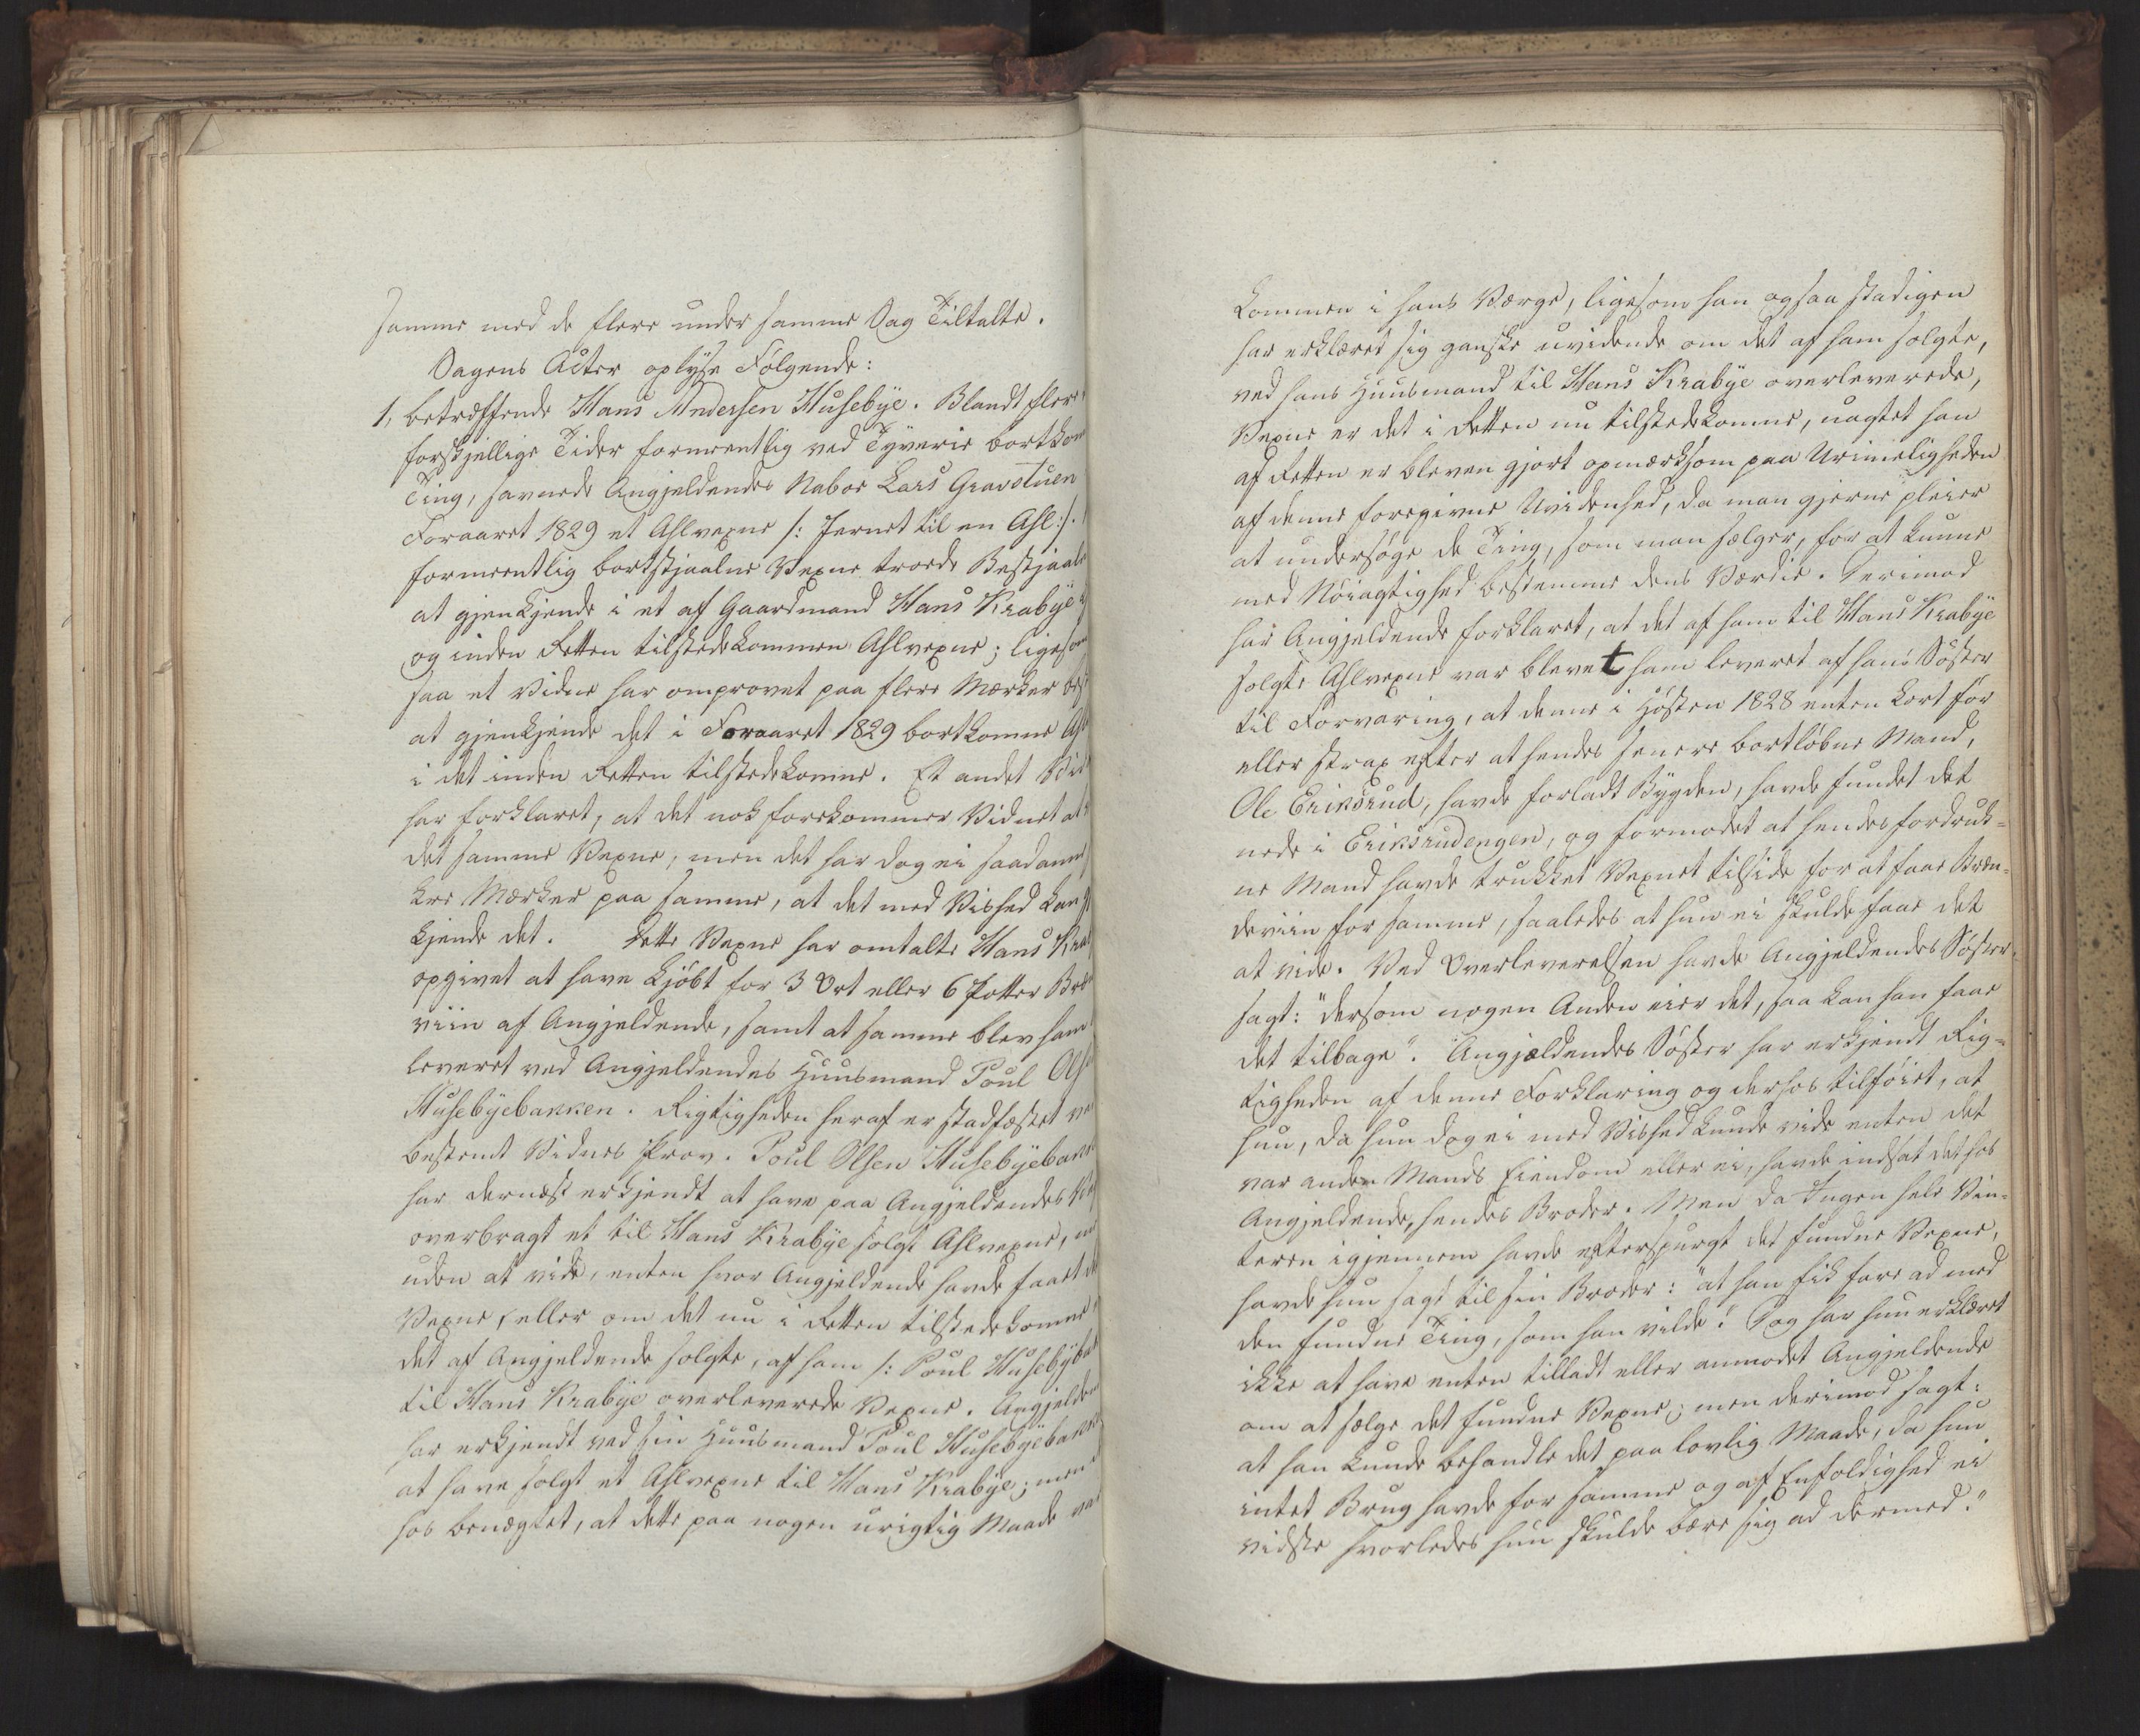 samme med de flere under samme Sag Tiltalte.
Sagens Acter oplyse Følgende:
1, betræffende Hans Andersen Husebÿe. Blandt flere
forskjellige Tider formeentlig ved Tÿverie bortkom
Ting, savnede Angjeldendes Naboe Lars Gravstuen
Foraaret 1829 et Ahlvexne /: Jernet til en Ahl :/.
formeentlig bortstjaalne Vexne troede Bestjaal
at gjenkjende i et af Gaardmand Hans Krabÿe
og inden Retten tilstedekommen Ahlvexne; ligesom
saa et Vidne har omprovet paa flere Mærker best
at gjenkjende det i Foraaret 1829 bortkomne Ahl
i det inden Retten tilstedekomne. Et andet Vid
har forklaret, at det nok forekommer Vidnet at
det samme Vexne, men det har dog ei saadanne
kre Mærker paa samme, at det med Vished kan gj
kjende det. Dette Vexne har omtalte Hans Krab
opgivet at have kjöbt for 3 Ort eller 6 Potter Bræn
viin af Angjeldende, samt at samme blev ham
leveret ved Angjeldendes Huusmand Poul Ols
Husebÿebakken. Rigtigheden heraf er stadfæstet ved
bestemt Vidnes Prov. Poul Olsen Husebÿebakk
har dernæst erkjendt at have paa Angjeldendes Ve
overbragt et til Hans Krabÿe solgt Ahlvexne, m
uden at vide, enten hvor Angjeldende havde faaet d
Vexne, eller om det nu i Retten tilstedekomne
det af Angjeldende solgte, af ham /: Poul Husebÿbak
til Hans Krabÿe overleverede Vexne. Angjelden
har erkjendt ved sin Huusmand Poul Husebÿebakk
at have solgt et Ahlvexne til Hans Krabÿe; men
hos benægtet, at dette paa nogen urigtig Maade var
kommen i hans Værge, ligesom han ogsaa stadigen
har erklæret sig ganske uvidende om det af ham solgte,
ved hans Huusmand til Hans Krabÿe overleverede,
Vexne er det i Retten nu tilstedekomne, uagtet han
af Retten er bleven gjort opmærksom paa Urimeligheden
af denne foregivne Uvidenhed, da man gjerne pleier
at undersøge de Ting, som man sælger, for at kunne
med Nöiagtighed bestemme dens Værdie. Derimod
har Angjeldende forklaret, at det af ham til Hans Krabÿe
solgte Ahlvexne var blevet ham leveret af hans Söster
til Forvaring, at denne i Høsten 1828 enten kort før
eller strax efter at hendes senere bortløbne Mand,
Ole Eriksrud, havde forladt Bÿgden, havde fundet det
nede i Eriksrudengen, og formodet at hendes fordruk-
ne Mand havde trukket Vexnet tilside for at faae Bræn-
deviin for samme, saaledes at hun ei skulde faae det
at vide. Ved Overleverelsen havde Angjeldendes Söster
sagt: "dersom nogen Anden eier det, saa kan han faae
det tilbage". Angjældendes Söster har erkjendt Rig-
tigheden af denne Forklaring og derhos tilföiet, at
hun, da hun dog ei med Vished kunde vide enten det
var anden Mands Eiendom eller ei, havde indsat det hos
Angjeldende, hendes Broder. Men da Ingen hele Vin-
teren igjennem havde efterspurgt det fundne Vexne,
havde hun sagt til sin Broder: "at han fik fare ad med
den fundne Ting, som han vilde". Dog har hun erklæret
ikke at have enten tilladt eller anmodet Angjeldende
om at sælge det fundne Vexne; men derimod sagt:
at han kunde behandle det paa lovlig Maade, da hun
intet Brug havde for samme og af Enfoldighed ei
vidste hvorledes hun skulde bære sig ad dermed."